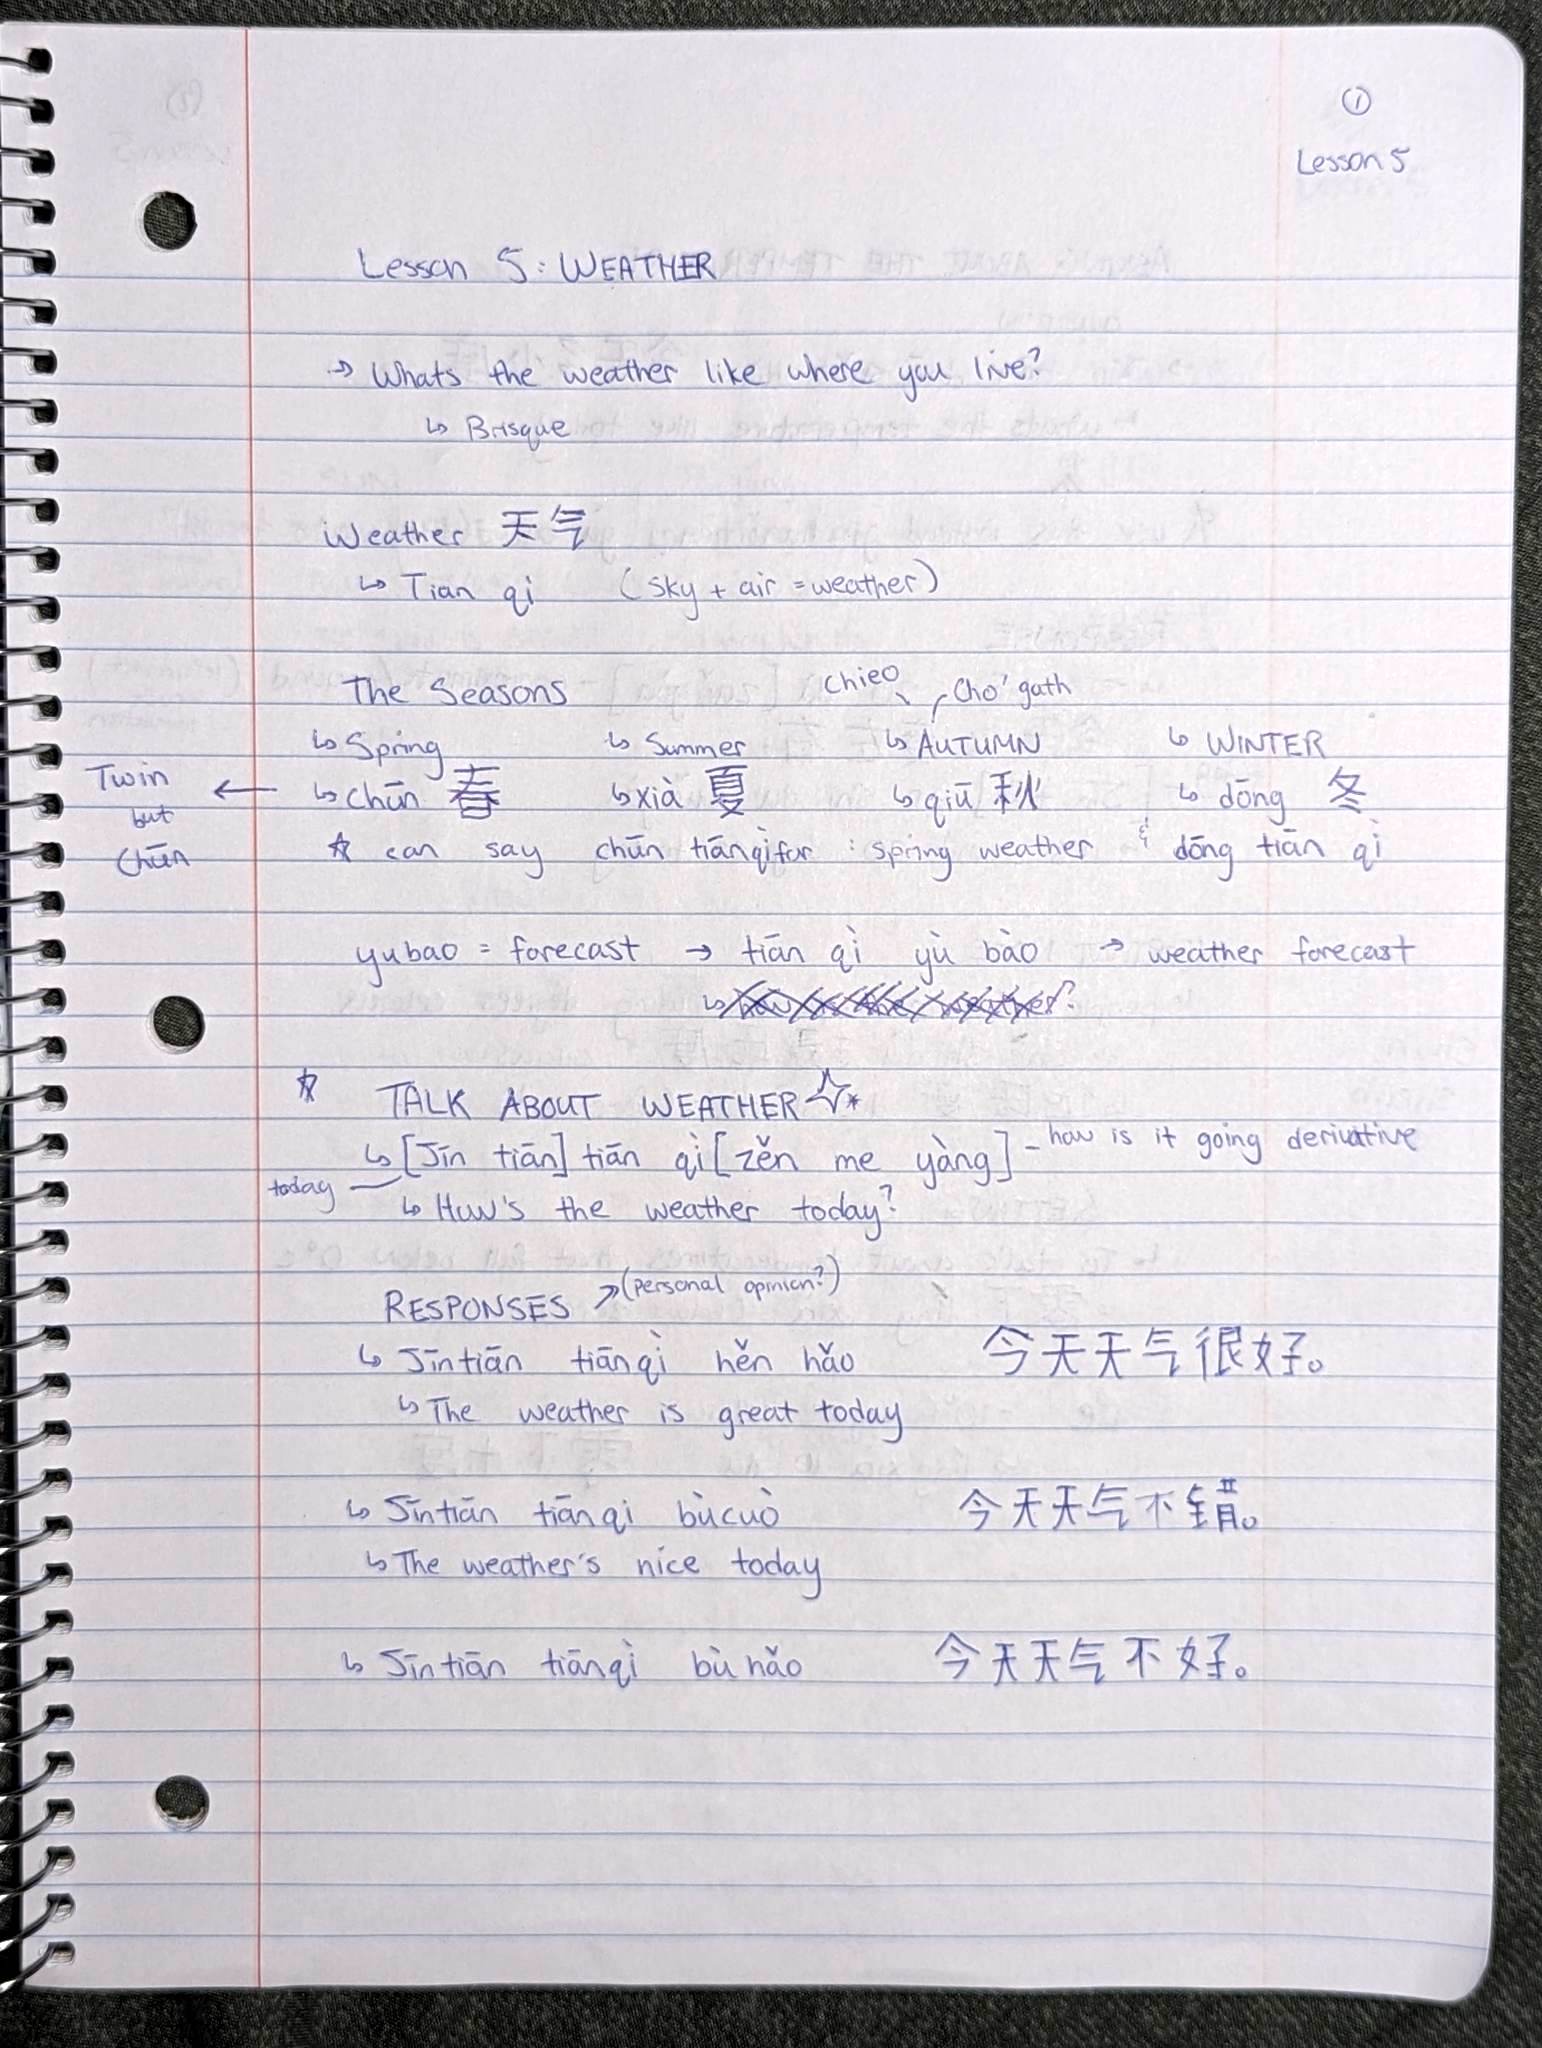 ①
Lesson 5
Lesson 5: WEATHER
→ Whats the weather like where you live?
↳ Brisque
Weather 天气
↳ Tian qi (sky + air = weather)
The Seasons
chieo Cho'gath
↳ Spring ↳ Summer ↳ AUTUMN ↳ WINTER
↳ chūn 春 ↳ xià 夏 ↳ qiū 秋 ↳ dōng 冬
← Twin
but
Chūn
☆ can say chūn tiānqì for : spring weather & dōng tiān qì
yubao = forecast → tiān qì yù bào → weather forecast
☆ TALK ABOUT WEATHER ☆*
↳ [Jīn tiān] tiān qì [zěn me yàng] - how is it going derivative
today
↳ How's the weather today?
RESPONSES ↗ (personal opinion?)
↳ Jīntiān tiānqì hěn hǎo 今天天气很好。
↳ The weather is great today
↳ Jīntiān tiānqi bùcuò 今天天气不错。
↳ The weather's nice today
↳ Jīntiān tiānqì bù hǎo 今天天气不好。